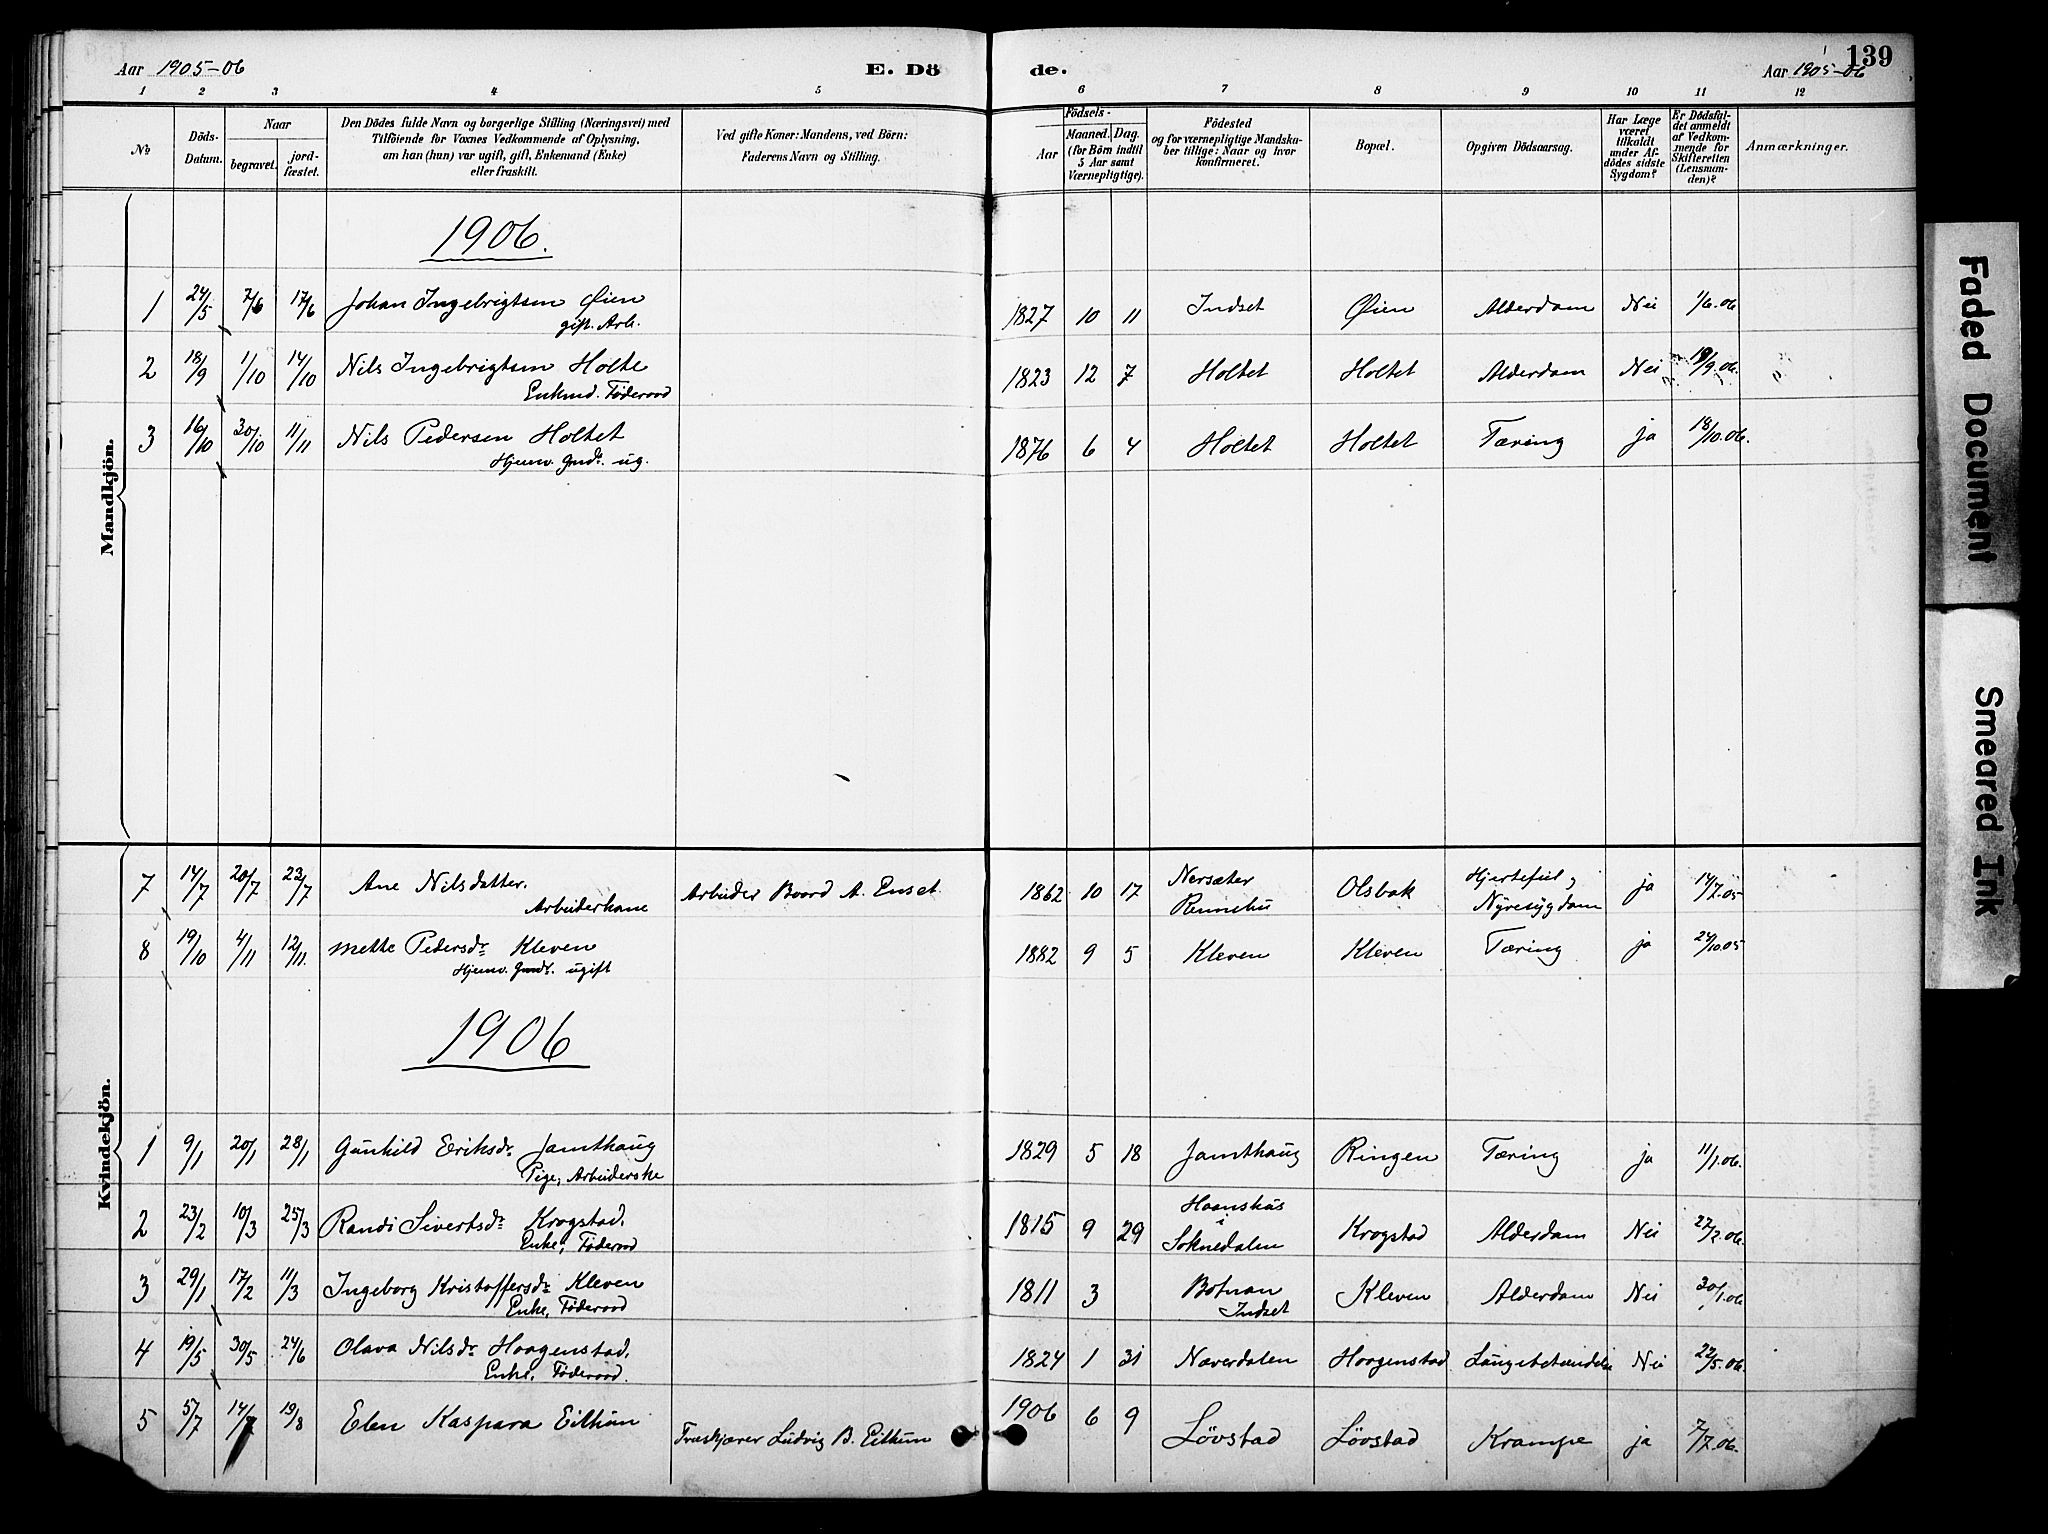 Aar 1905-06
E. Dö
de.
139
Aar 1905-06
1 2 3 4 5 6 7 8 9 10 11 12
No.
Döds-Datum.
Naar
begravet.
jordfæstet.
Den Dödes fulde Navn og borgerlige Stilling (Næringsvei) med
Tilföiende for Voxnes Vedkommende af Oplysning,
om han (hun) var ugift, gift, Enkemand (Enke)
eller fraskilt.
Ved gifte Koner: Mandens, ved Börn:
Faderens Navn og Stilling.
Födsels-
Aar
Maaned. Dag.
(for Börn indtil
5 Aar samt
Værnepligtige).
Födested
og for værnepligtige Mandskaber tillige: Naar og hvor
konfirmeret.
Bopæl.
Opgiven Dödsaarsag.
Har Læge
været
tilkaldt
under Afdödes sidste
Sygdom?
Er Dödsfaldet anmeldt
af Vedkommende for
Skifteretten
(Lensmanden)?
Anmærkninger.
Mandkjön.
1906.
1 24/5 7/6 17/6 Johan Ingebrigtsen Øien 1827 10 11 Indset Øien Alderdom Nei 1/6.06
gift. Arb.
2 18/9 1/10 14/10 Nils Ingebrigtsen Holte 1823 12 7 Holtet Holtet Alderdom Nei 19/9.06.
Enkmd. Føderaad
3 16/10 30/10 11/11 Nils Pedersen Holtet 1876 6 4 Holtet Holtet Tæring ja 18/10.06.
Hjemv. Gmds. ug.
Kvindekjön.
7 14/7 20/7 23/7 Ane Nilsdatter. Arbeider Baard A. Enset 1862 10 17 Nersæter Olsbak Hjertefeil, ja 14/7.05
Arbeiderkone Rennebu Nyresygdom
8 19/10 4/11 12/11. Mette Pedersdr Kleven 1882 9 5 Kleven Kleven Tæring ja 24/10.05
Hjemv. Gmdr. ugift
1906
1 9/1 20/1 28/1 Gunhild Eriksdr Jamthaug 1829 5 18 Jamthaug Ringen Tæring ja 11/1.06.
Pige, Arbeiderske
2 23/2 10/3 25/3 Randi Sivertsdr Krogstad. 1815 9 29 Haanshus i Soknedalen Krogstad Alderdom Nei 27/2.06.
Enke, Føderaad
3 29/1 17/2 11/3 Ingeborg Kristoffersdr Kleven 1811 3 Botnan Kleven Alderdom Nei 30/1.06
Enke, Føderaad Indset
4 19/5 30/5 24/6 Olava Nilsdr Haagenstad. 1824 1 31 Naverdalen Haagenstad Lungebetændelse Nei 22/5.06.
Enke, Føderaad.
5 5/7 14/7 19/8 Elen Kaspara Eithun Træskjærer Ludvig B. Eithun 1906 6 9 Løvstad Løvstad Krampe ja 7/7.06.
Faded Document
Smeared Ink